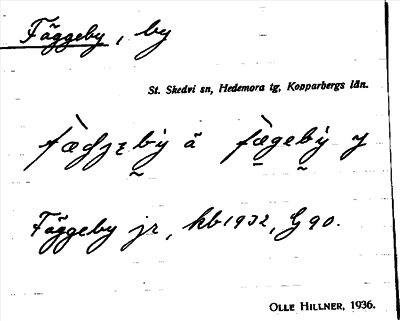 Fäggeby, by
St. Skedvi sn, Hedemora tg, Kopparbergs län.
by ä y
Fäggeby jr, kb 1932, G 90.
OLLE HILLNER, 1936.